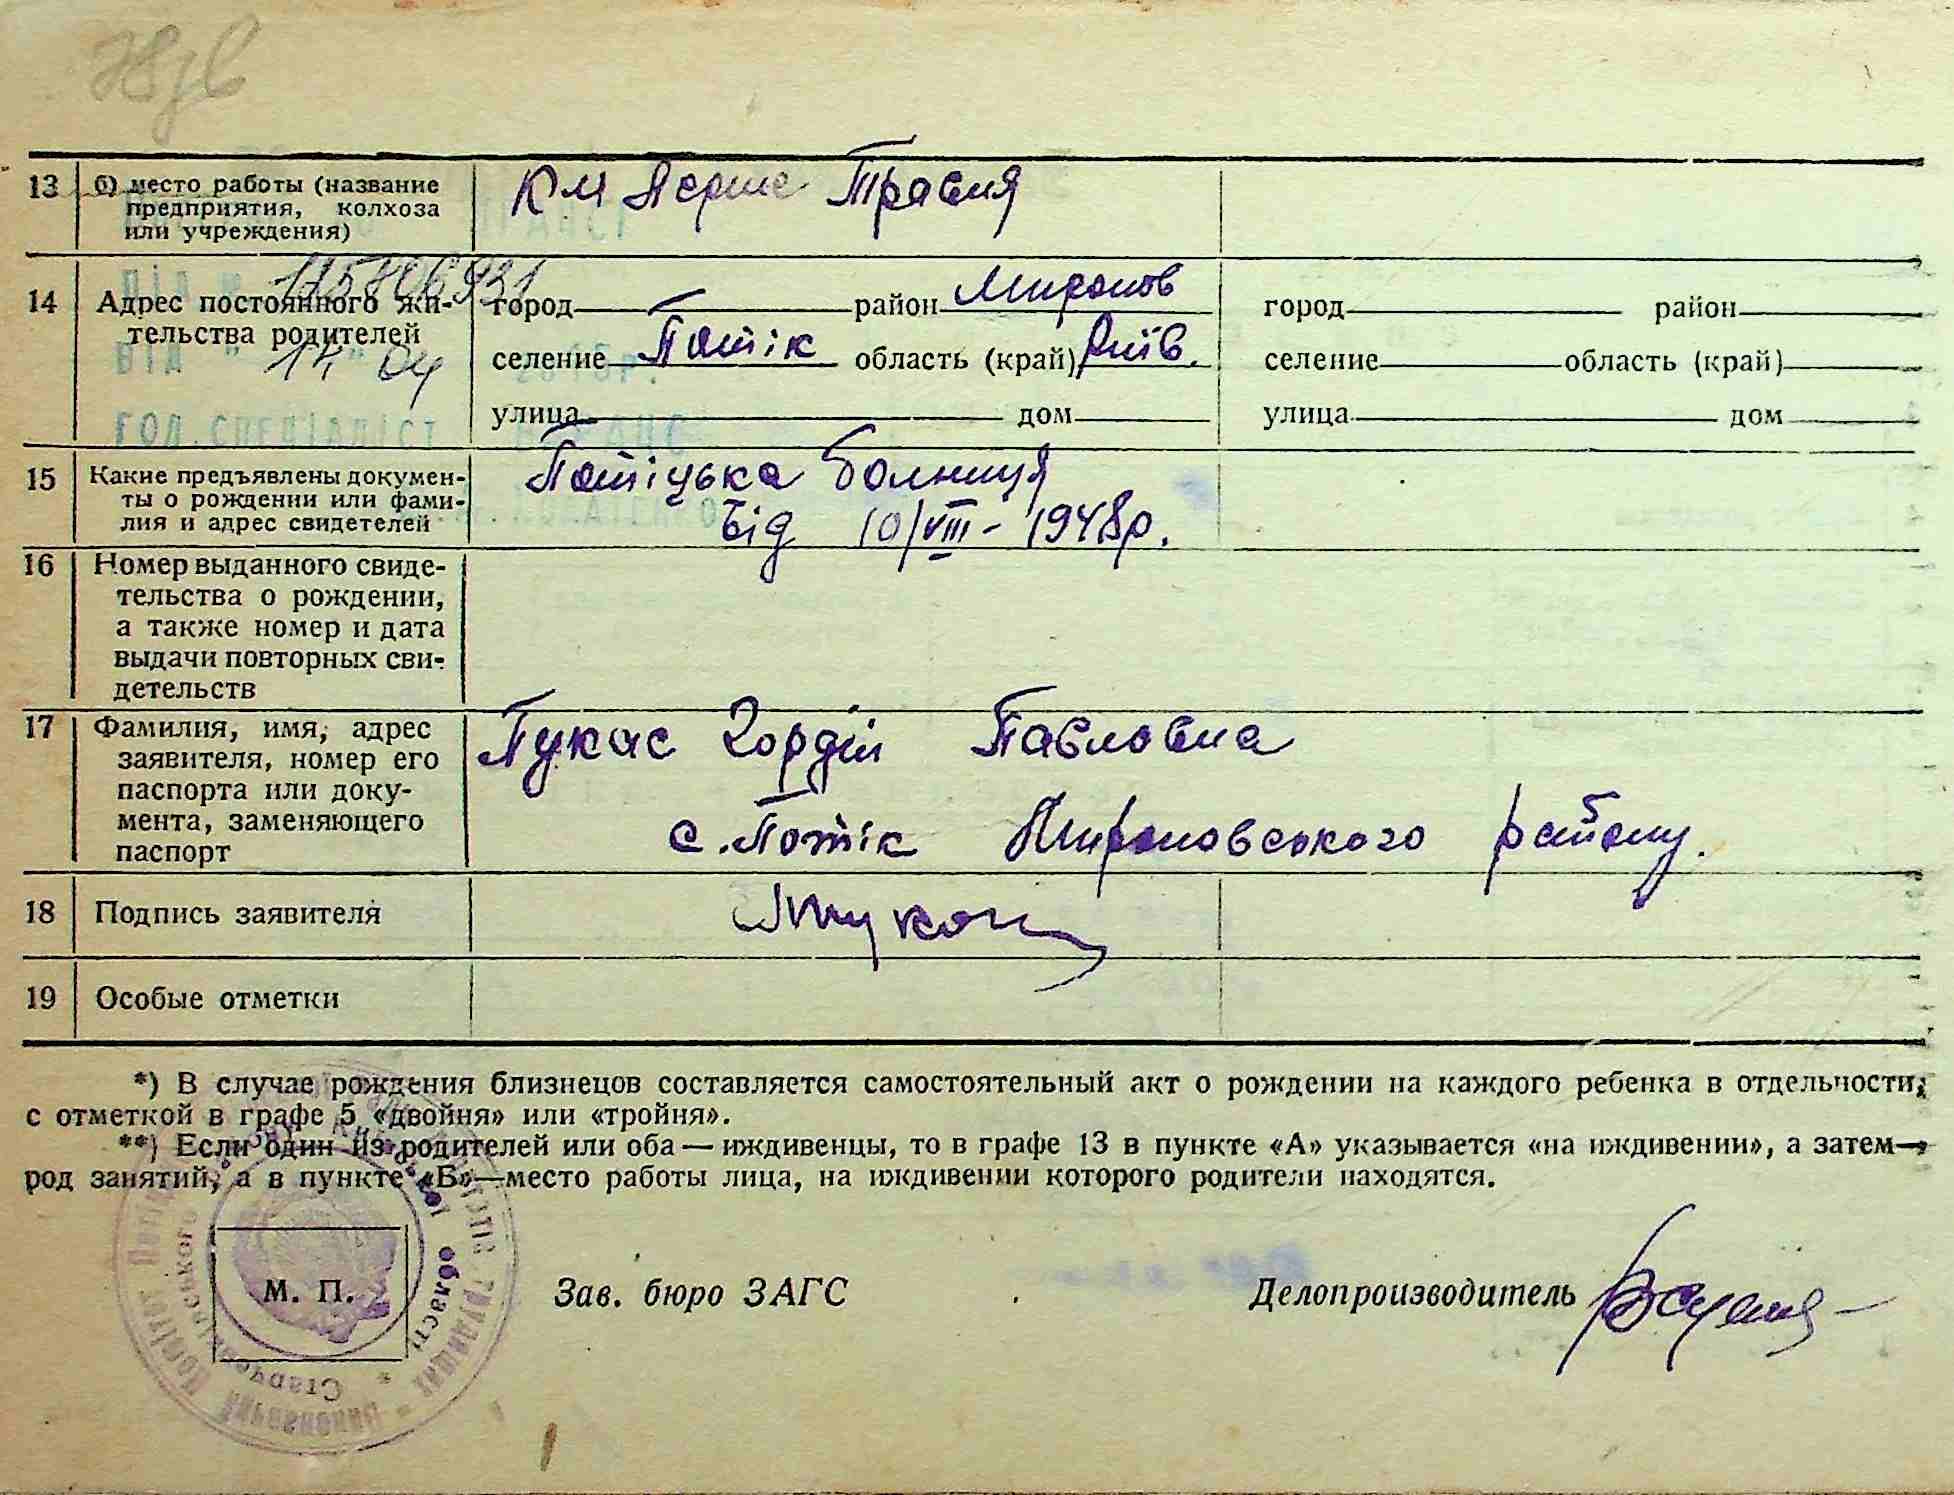 13 б) место работы (название
предприятия, колхоза
или учреждения)
Перше Травня
14 Адрес постоянного жи-
тельства родителей
город район Миронов
селение Потік область (край) Київ.
улица дом
город район
селение область (край)
улица дом
14 04
ГОЛ. СПЕЦІАЛІСТ
15 Какие предъявлены докумен-
ты о рождении или фами-
лия и адрес свидетелей
Потіцька болниця
від 10/VIII - 1948р.
16 Номер выданного свиде-
тельства о рождении,
а также номер и дата
выдачи повторных сви-
детельств
17 Фамилия, имя, адрес
заявителя, номер его
паспорта или доку-
мента, заменяющего
паспорт
Пукас Гордій Павловна
с. Потік Мироновського району.
18 Подпись заявителя
19 Особые отметки
*) В случае рождения близнецов составляется самостоятельный акт о рождении на каждого ребенка в отдельности,
с отметкой в графе 5 «двойня» или «тройня».
**) Если один из родителей или оба — иждивенцы, то в графе 13 в пункте «А» указывается «на иждивении», а затем—
род занятий, а в пункте «Б»—место работы лица, на иждивении которого родители находятся.
М. П.
Зав. бюро ЗАГС
Делопроизводитель